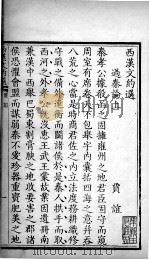 西漢文約選
過秦論上
賈誼
秦孝公據殽函之固擁雍州之地君臣固守以窺
周室有席卷天下包舉宇內囊括四海之意并吞
八荒之心當是時商君佐之內立法度務耕織修
守戰之備外連衡而鬭諸侯於是秦人拱手而取
西河之外孝公既沒惠王武王蒙故業因遺策南
兼漢中西舉巴蜀東割膏腴之地收要害之郡諸
侯恐懼會盟而謀弱秦不愛珍器重寶肥美之地